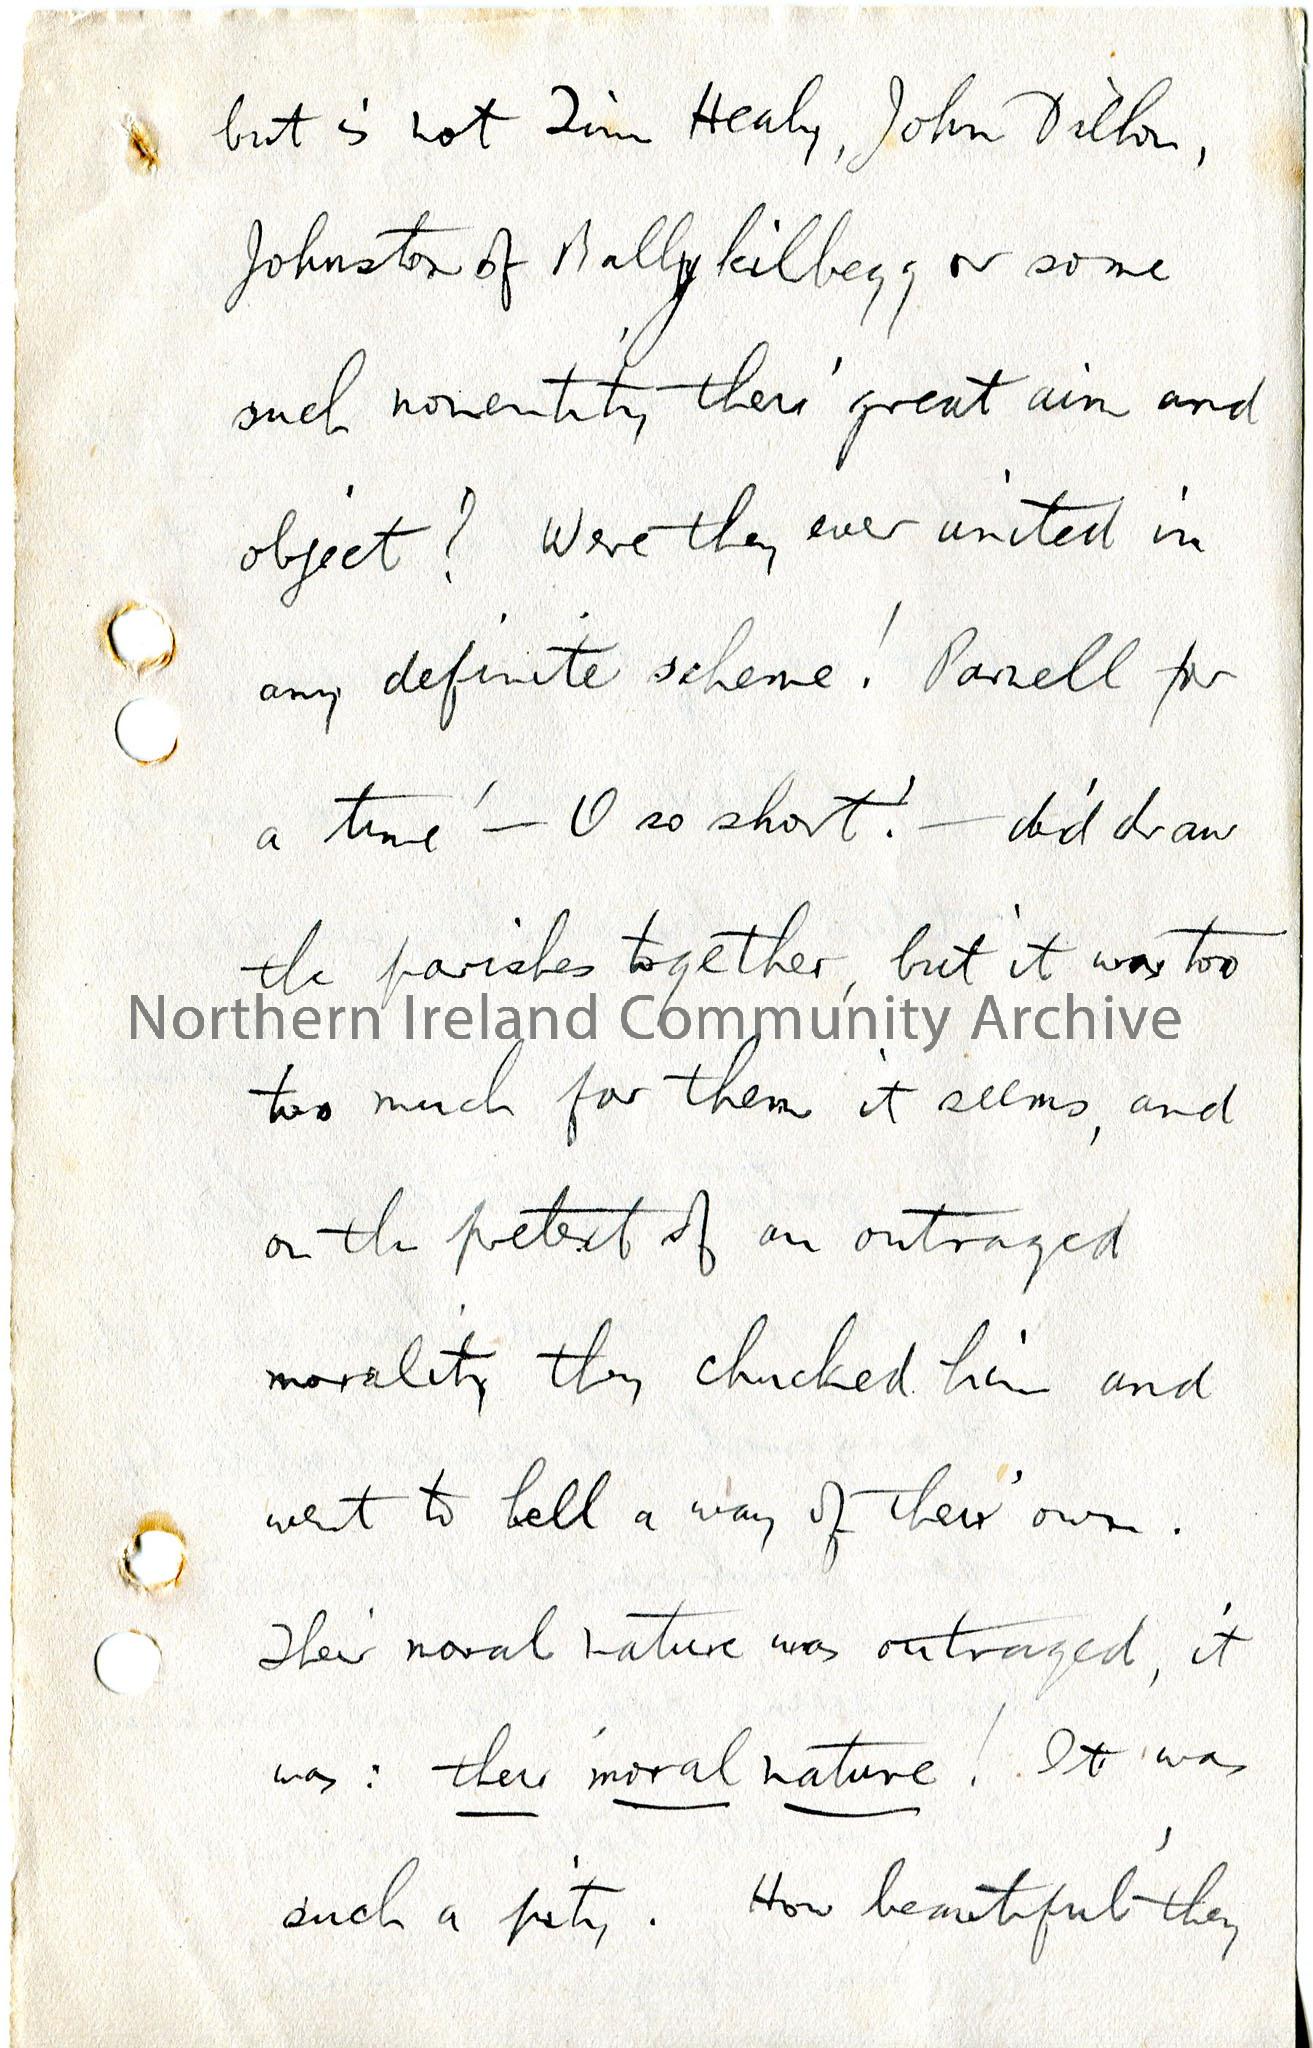 but is not Tim Healy, John Dillon,
Johnston of Ballykilbegg or some
such nonentity their great aim and
object? Were they ever united in
any definite scheme! Parnell for
a time! — O so short! — did draw
the parishes together, but it was too
too much for them it seems, and
on the pretext of an outraged
morality they chucked him and
went to hell a way of their own.
Their moral nature was outraged, it
was: their moral nature! It was
such a pity. How beautiful they
Northern Ireland Community Archive